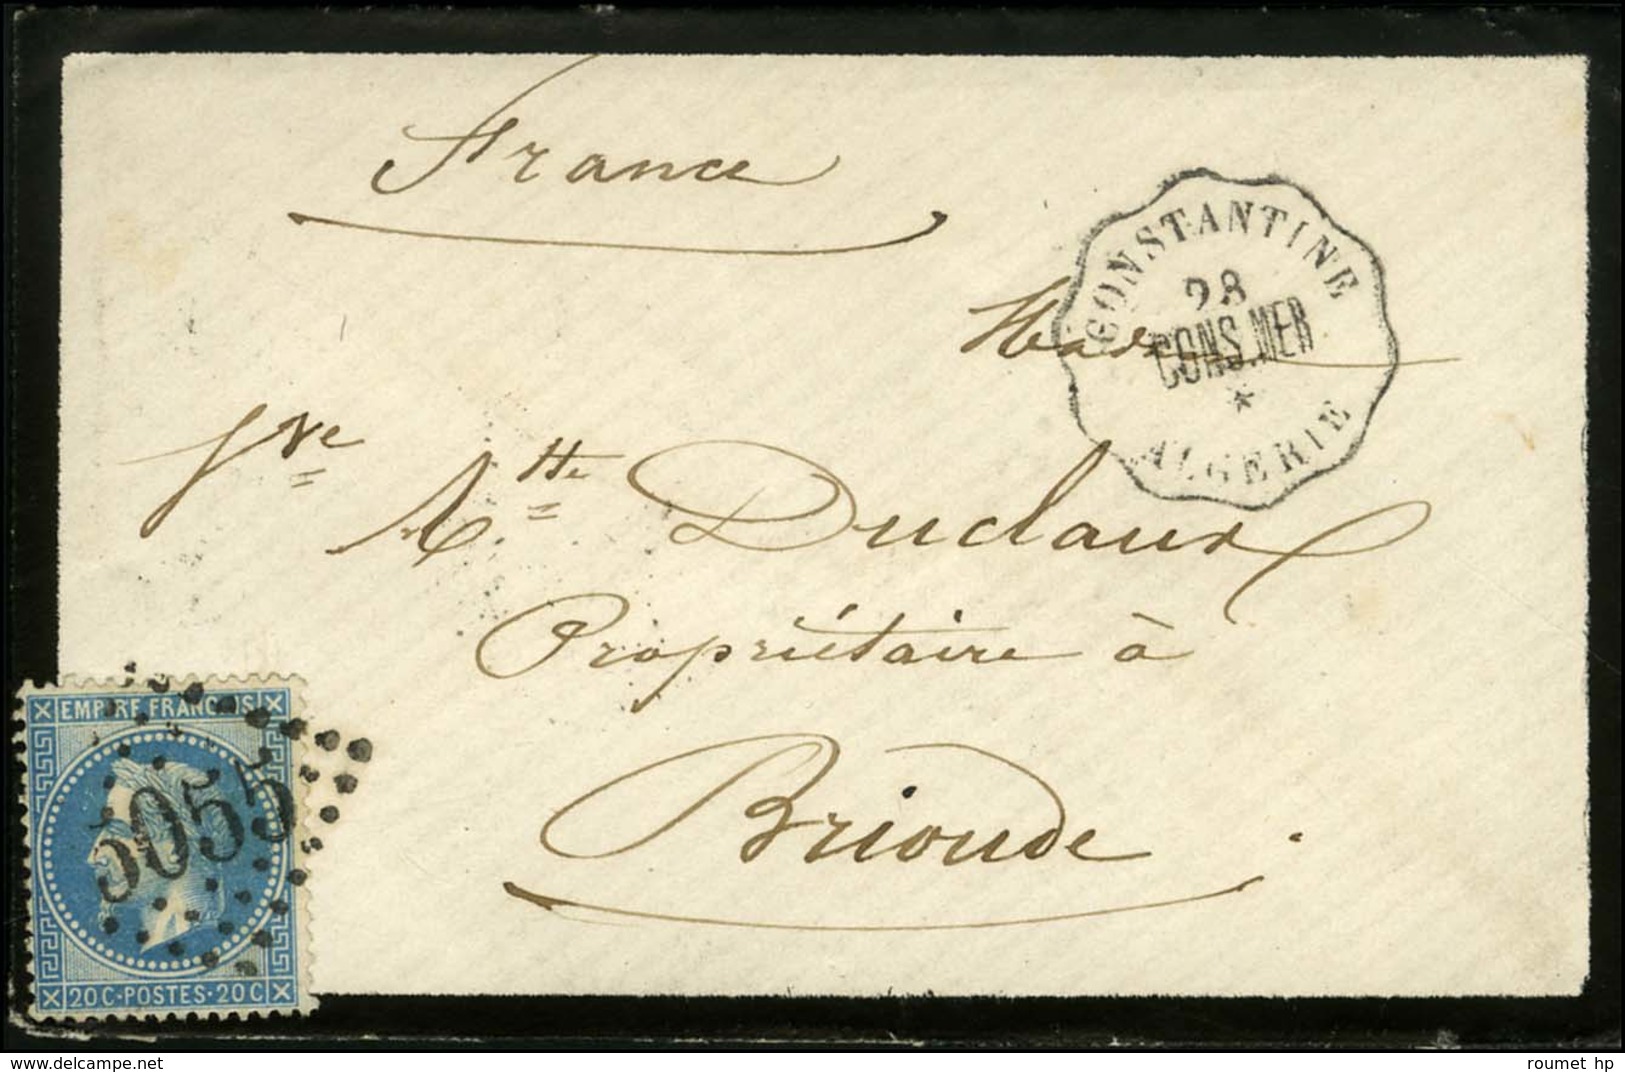 France
CONSTANTINE
28
CONS.MER
*
ALGERIE
Madame
Vve
Duclaux
Propriétaire à
Brioude.
EMPIRE FRANÇAIS
5055
20 C·POSTES·20 C
www.delcampe.net
roumet hp